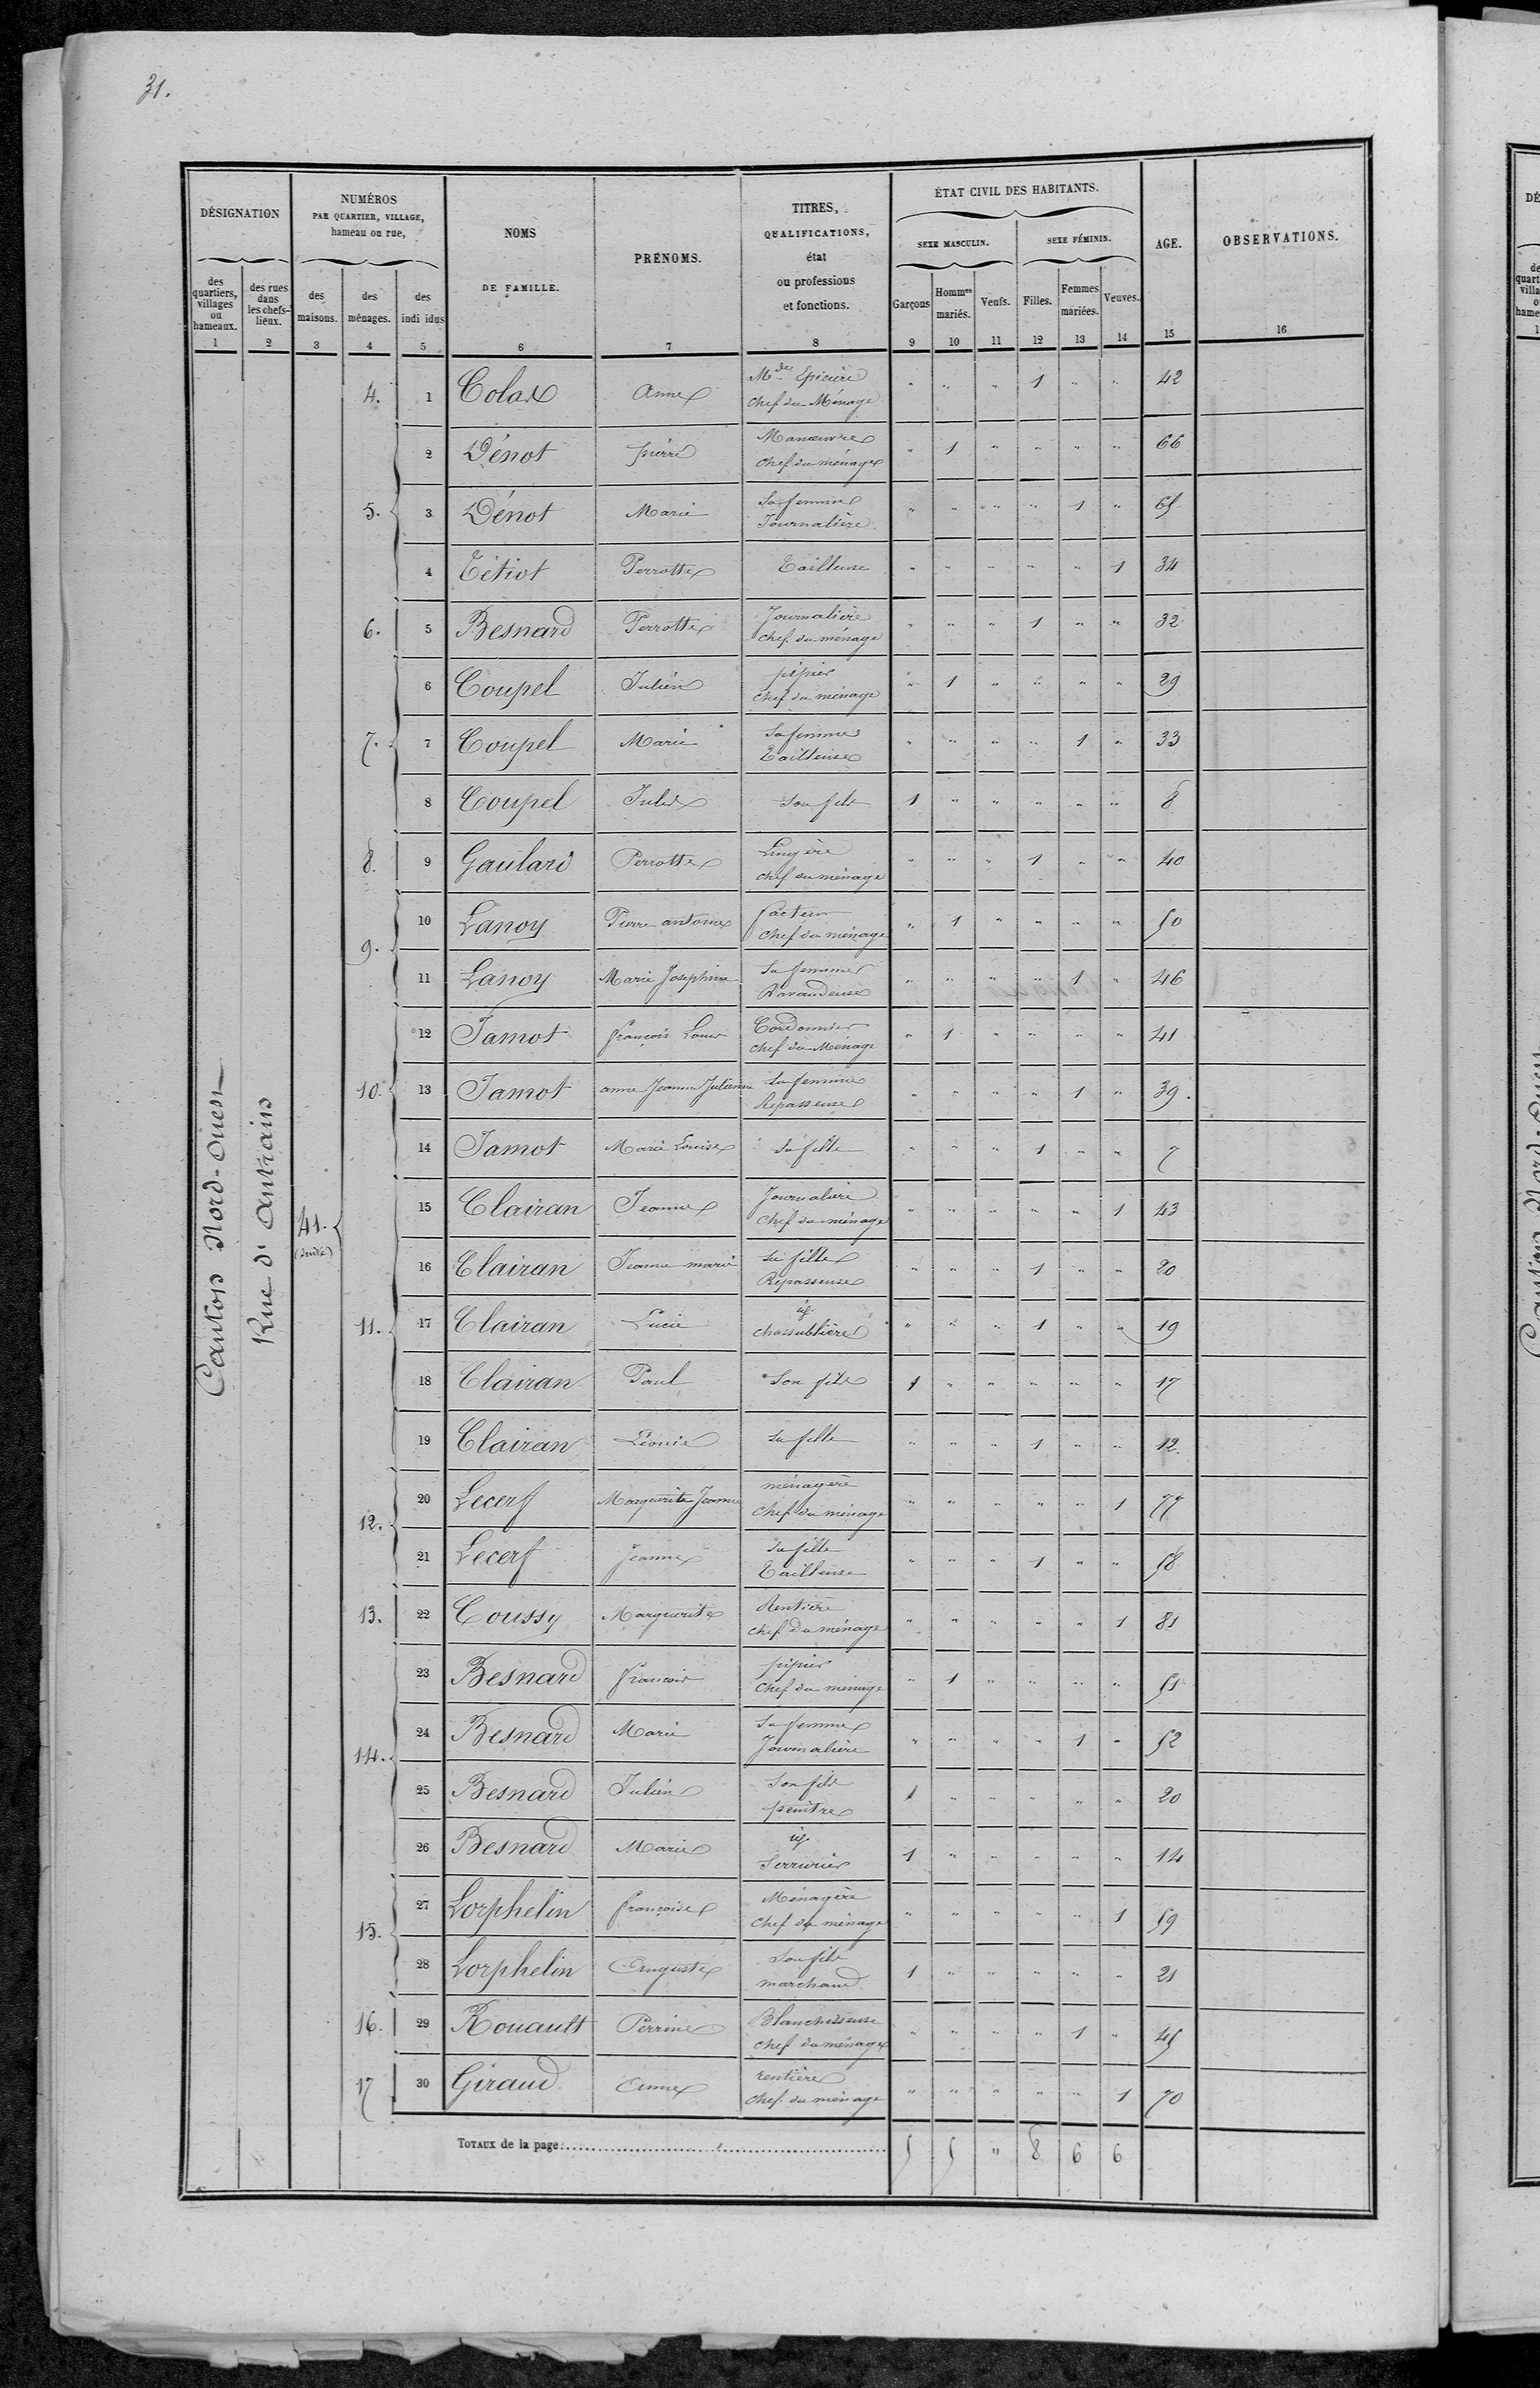 31.
DÉSIGNATION
NUMÉROS
PAR QUARTIER, VILLAGE,
hameau ou rue,
NOMS
DE FAMILLE.
PRÉNOMS.
TITRES,
QUALIFICATIONS,
état
ou professions
et fonctions.
ÉTAT CIVIL DES HABITANTS.
SEXE MASCULIN.
SEXE FÉMININ.
AGE.
OBSERVATIONS.
des quartiers, villages ou hameaux.
des rues dans les chefs-lieux.
des maisons.
des ménages.
des indi idus
Garçons
Hommes mariés.
Veufs.
Filles.
Femmes mariées.
Veuves.
1 2 3 4 5 6 7 8 9 10 11 12 13 14 15 16
Canton Nord-Ouest
Rue d'Antrain
41.
(suite)
4. 1 Colas Anne Mde Epicière Chef du Ménage " " " 1 " " 42
2 Dénot pierre Manœuvre chef du ménage " 1 " " " " 66
5. 3 Dénot Marie Sa femme Journalière " " " " 1 " 65
4 Tétiot Perrotte Tailleuse " " " " " 1 34
6. 5 Besnard Perrotte Journalière chef du ménage " " " 1 " " 32
6 Coupel Julien pipier chef du ménage " 1 " " " " 29
7. 7 Coupel Marie Sa femme Tailleuse " " " " 1 " 33
8 Coupel Jules Son fils 1 " " " " " 8
8. 9 Gaulard Perrotte Lingère chef du ménage " " " 1 " " 40
9. 10 Lanoy Pierre antoine facteur Chef du ménage " 1 " " " " 50
11 Lanoy Marie Josephine Sa femme Ravaudeuse " " " " 1 " 46
12 Jamot françois Louis Cordonnier chef du Ménage " 1 " " " " 41
10. 13 Jamot anne Jeanne Julienne Sa femme Repasseuse " " " " 1 " 39.
14 Jamot Marie Louise Sa fille " " " 1 " " 7
15 Clairan Jeanne Journalière Chef du ménage " " " " " 1 43
16 Clairan Jeanne marie sa fille Repasseuse " " " 1 " " 20
11. 17 Clairan Lucie id. chassublière " " " 1 " " 19
18 Clairan Paul Son fils 1 " " " " " 17
19 Clairan Léonie sa fille " " " 1 " " 12.
12. 20 Lecerf Marguerite Jeanne ménagère Chef du ménage " " " " " 1 77
21 Lecerf Jeanne Sa fille Tailleuse " " " 1 " " 58
13. 22 Coussy Marguerite Rentière chef du ménage " " " " " 1 81
23 Besnard françois pipier Chef du ménage " 1 " " " " 51
14. 24 Besnard Marie Sa femme Journalière " " " " 1 " 52
25 Besnard Julien Son fils peintre 1 " " " " " 20
26 Besnard Marie id. Serrurier 1 " " " " " 14
15. 27 Lorphelin françoise Ménagère Chef du ménage " " " " " 1 59
28 Lorphelin Auguste Son fils marchand 1 " " " " " 21
16. 29 Rouault Perrine Blanchisseuse chef du ménage " " " " 1 " 45
17 30 Giraud Anne rentière Chef du ménage " " " " " 1 70
TOTAUX de la page 5 5 " 8 6 6